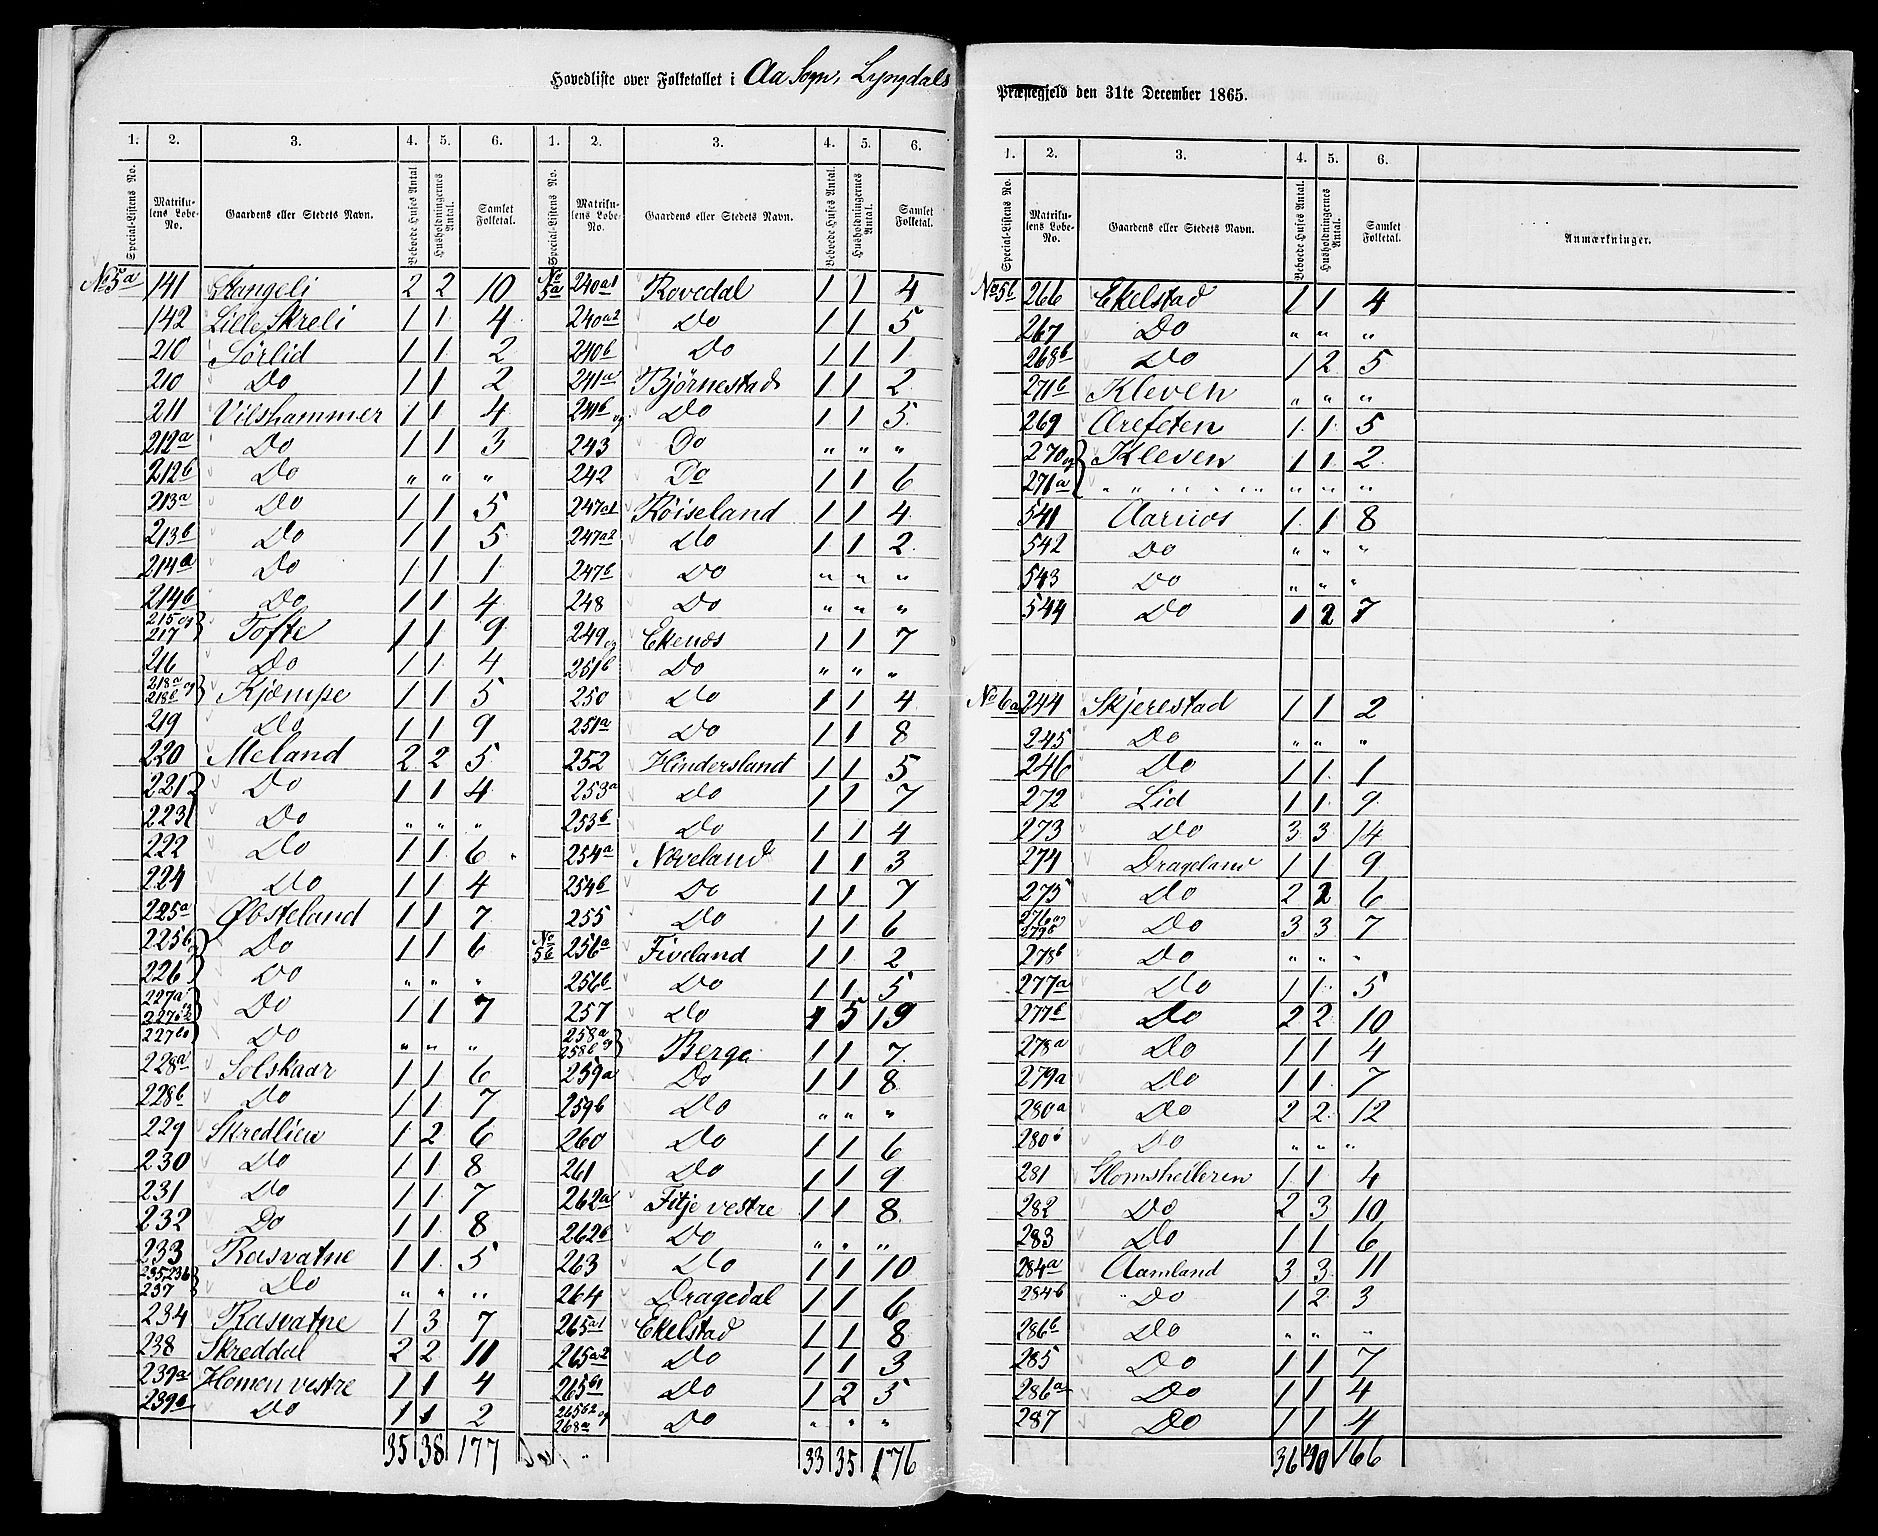 Hovedliste over Folketallet i Aa Sogn, Lyngdals Præstegjeld den 31te December 1865.
1. 2. 3. 4. 5. 6. 1. 2. 3. 4. 5. 6.
Special-Listens No. Matrikulens Løbe-No. Gaardens eller Stedets Navn. Beboede Huses Antal. Husholdningernes Antal. Samlet Folketal. Special-Listens No. Matrikulens Løbe-No. Gaardens eller Stedets Navn. Beboede Huses Antal. Husholdningernes Antal. Samlet Folketal.
No 5a 141 Stangeli 2 2 10
142 Lille Skreli 1 1 4
210 Sørlid 1 1 2
210 Do 1 1 2
211 Vilshammer 1 1 4
212a Do 1 1 3
212b Do " " "
213a Do 1 1 5
213b Do 1 1 5
214a Do 1 1 1
214b Do 1 1 4
215 og 217 Tofte 1 1 9
216 Do 1 1 4
218a og 218b Kjæmpe 1 1 5
219 Do 1 1 9
220 Meland 2 2 5
221 Do 1 1 4
223 Do " " "
222 Do 1 1 6
224 Do 1 1 4
225a Øbsteland 1 1 7
225b Do 1 1 6
226 Do " " "
227a Do 1 1 7
Do " " "
228a Solskaar 1 1 6
228b Do 1 1 7
229 Skredlien 1 2 6
230 Do 1 1 8
231 Do 1 1 7
232 Do 1 1 8
233 Rosvatne 1 1 5
235, 236 237 Do " " "
234 Rosvatne 1 3 7
238 Skreddal 2 2 11
239a Homen vestre 1 1 4
Do 1 1 2
35 38 177
No 5a 240a1 Rovedal 1 1 4
240a2 Do 1 1 5
240b Do 1 1 1
241a Bjørnestad 1 1 2
241b og Do 1 1 5
243 Do " " "
242 Do 1 1 6
247a1 Røiseland 1 1 4
247a2 Do 1 1 2
247b Do " " "
248 Do " " "
249 og Ekenes 1 1 7
251b Do " " "
250 Do 1 1 4
251a Do 1 1 8
252 Hindersland 1 1 5
253a Do 1 1 7
253b Do 1 1 4
254a Noveland 1 1 3
254b Do 1 1 7
255 Do 1 1 6
No 5b 256a Fiveland 1 1 2
256b Do 1 1 5
257 Do 4 5 19
258a 258b og Berge 1 1 7
259a Do 1 1 8
259b Do " " "
260 Do 1 1 6
261 Do 1 1 9
262a Fitje vestre 1 1 8
262b Do " " "
263 Do 1 1 10
264 Dragedal 1 1 6
265a1 Ekelstad 1 1 8
265a2 Do 1 1 3
265b1 Do 1 2 5
265b2 og 268a Do " " "
33 35 176
1. 2. 3. 4. 5. 6.
Special-Listens No. Matrikulens Løbe-No. Gaardens eller Stedets Navn. Beboede Huses Antal. Husholdningernes Antal. Samlet Folketal. Anmærkninger.
No 5b 266 Ekelstad 1 1 4
267 Do " " "
268b Do 1 2 5
271b Kleven " " "
269 1 1 5
270 og Kleven 1 1 2
271a " " " " " "
541 Aarnes 1 1 8
542 Do " " "
543 Do " " "
544 Do 1 2 7
No 6a 244 Skjerestad 1 1 2
245 Do " " "
246 Do 1 1 1
272 Lid 1 1 9
273 Do 3 3 14
274 Drageland 1 1 9
275 Do 2 2 6
276 og Do 3 3 7
278b Do " " "
277a Do 1 1 5
277b Do 2 2 10
278a Do 1 1 4
279a Do 1 1 7
280a Do 2 2 12
280b Do " " "
281 Slomshelleren 1 1 4
282 Do 2 3 10
283 Do 1 1 6
284a Aamland 3 3 11
284b Do 1 2 3
286b Do " " "
285 Do 1 1 7
286a Do 1 1 4
287 Do 1 1 4
36 40 166